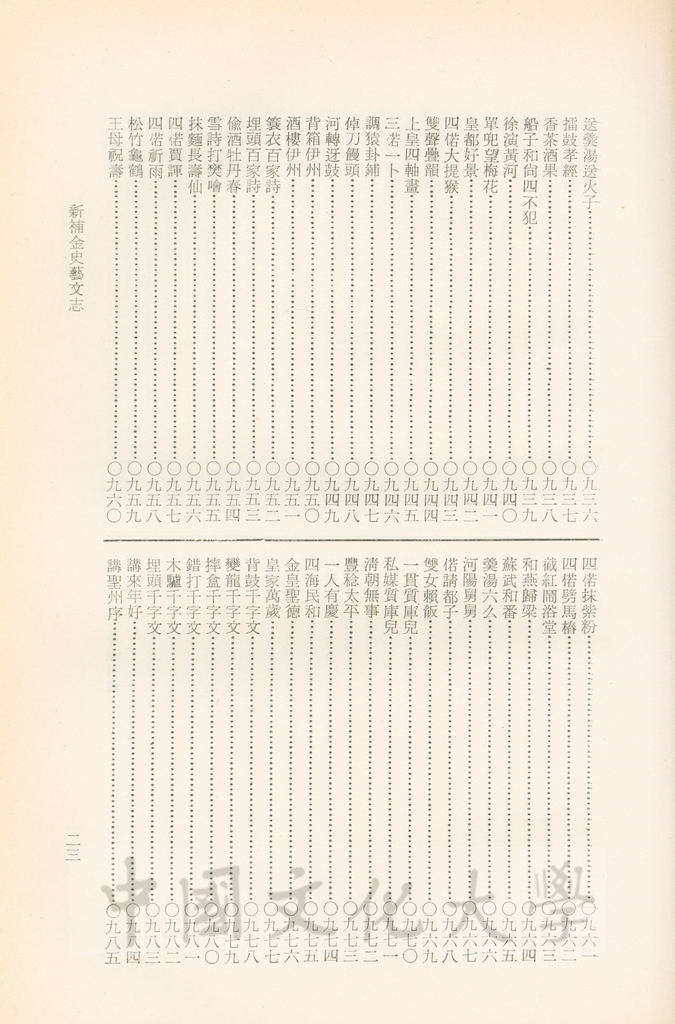 送羹湯送火子……〇九三六
擂鼓孝經……〇九三七
香茶酒果……〇九三八
船子和尙四不犯……〇九三九
徐演黃河……〇九四〇
單兜望梅花……〇九四一
皇都好景……〇九四二
四偌大提猴……〇九四三
雙聲疊韻……〇九四四
上皇四軸畫……〇九四五
三偌一卜……〇九四六
調猿卦鋪……〇九四七
倬刀饅頭……〇九四八
河轉迓鼓……〇九四九
背箱伊州……〇九五〇
酒樓伊州……〇九五一
簑衣百家詩……〇九五二
埋頭百家詩……〇九五三
偸酒牡丹春……〇九五四
雪詩打樊噲……〇九五五
抹麵長壽仙……〇九五六
四偌賈諢……〇九五七
四偌祈雨……〇九五八
松竹龜鶴……〇九五九
王母祝壽……〇九六〇
四偌抹紫粉……〇九六一
四偌劈馬樁……〇九六二
截紅鬧浴堂……〇九六三
和燕歸梁……〇九六四
蘇武和番……〇九六五
羹湯六么……〇九六六
河陽舅舅……〇九六七
偌請都子……〇九六八
雙女賴飯……〇九六九
一貫質庫兒……〇九七〇
私媒質庫兒……〇九七一
淸朝無事……〇九七二
豐稔太平……〇九七三
一人有慶……〇九七四
四海民和……〇九七五
金皇聖德……〇九七六
皇家萬歲……〇九七七
背鼓千字文……〇九七八
變龍千字文……〇九七九
摔盒千字文……〇九八〇
錯打千字文……〇九八一
木驢千字文……〇九八二
埋頭千字文……〇九八三
講來年好……〇九八四
講聖州序……〇九八五
新補金史藝文志
二三
中國文化大學